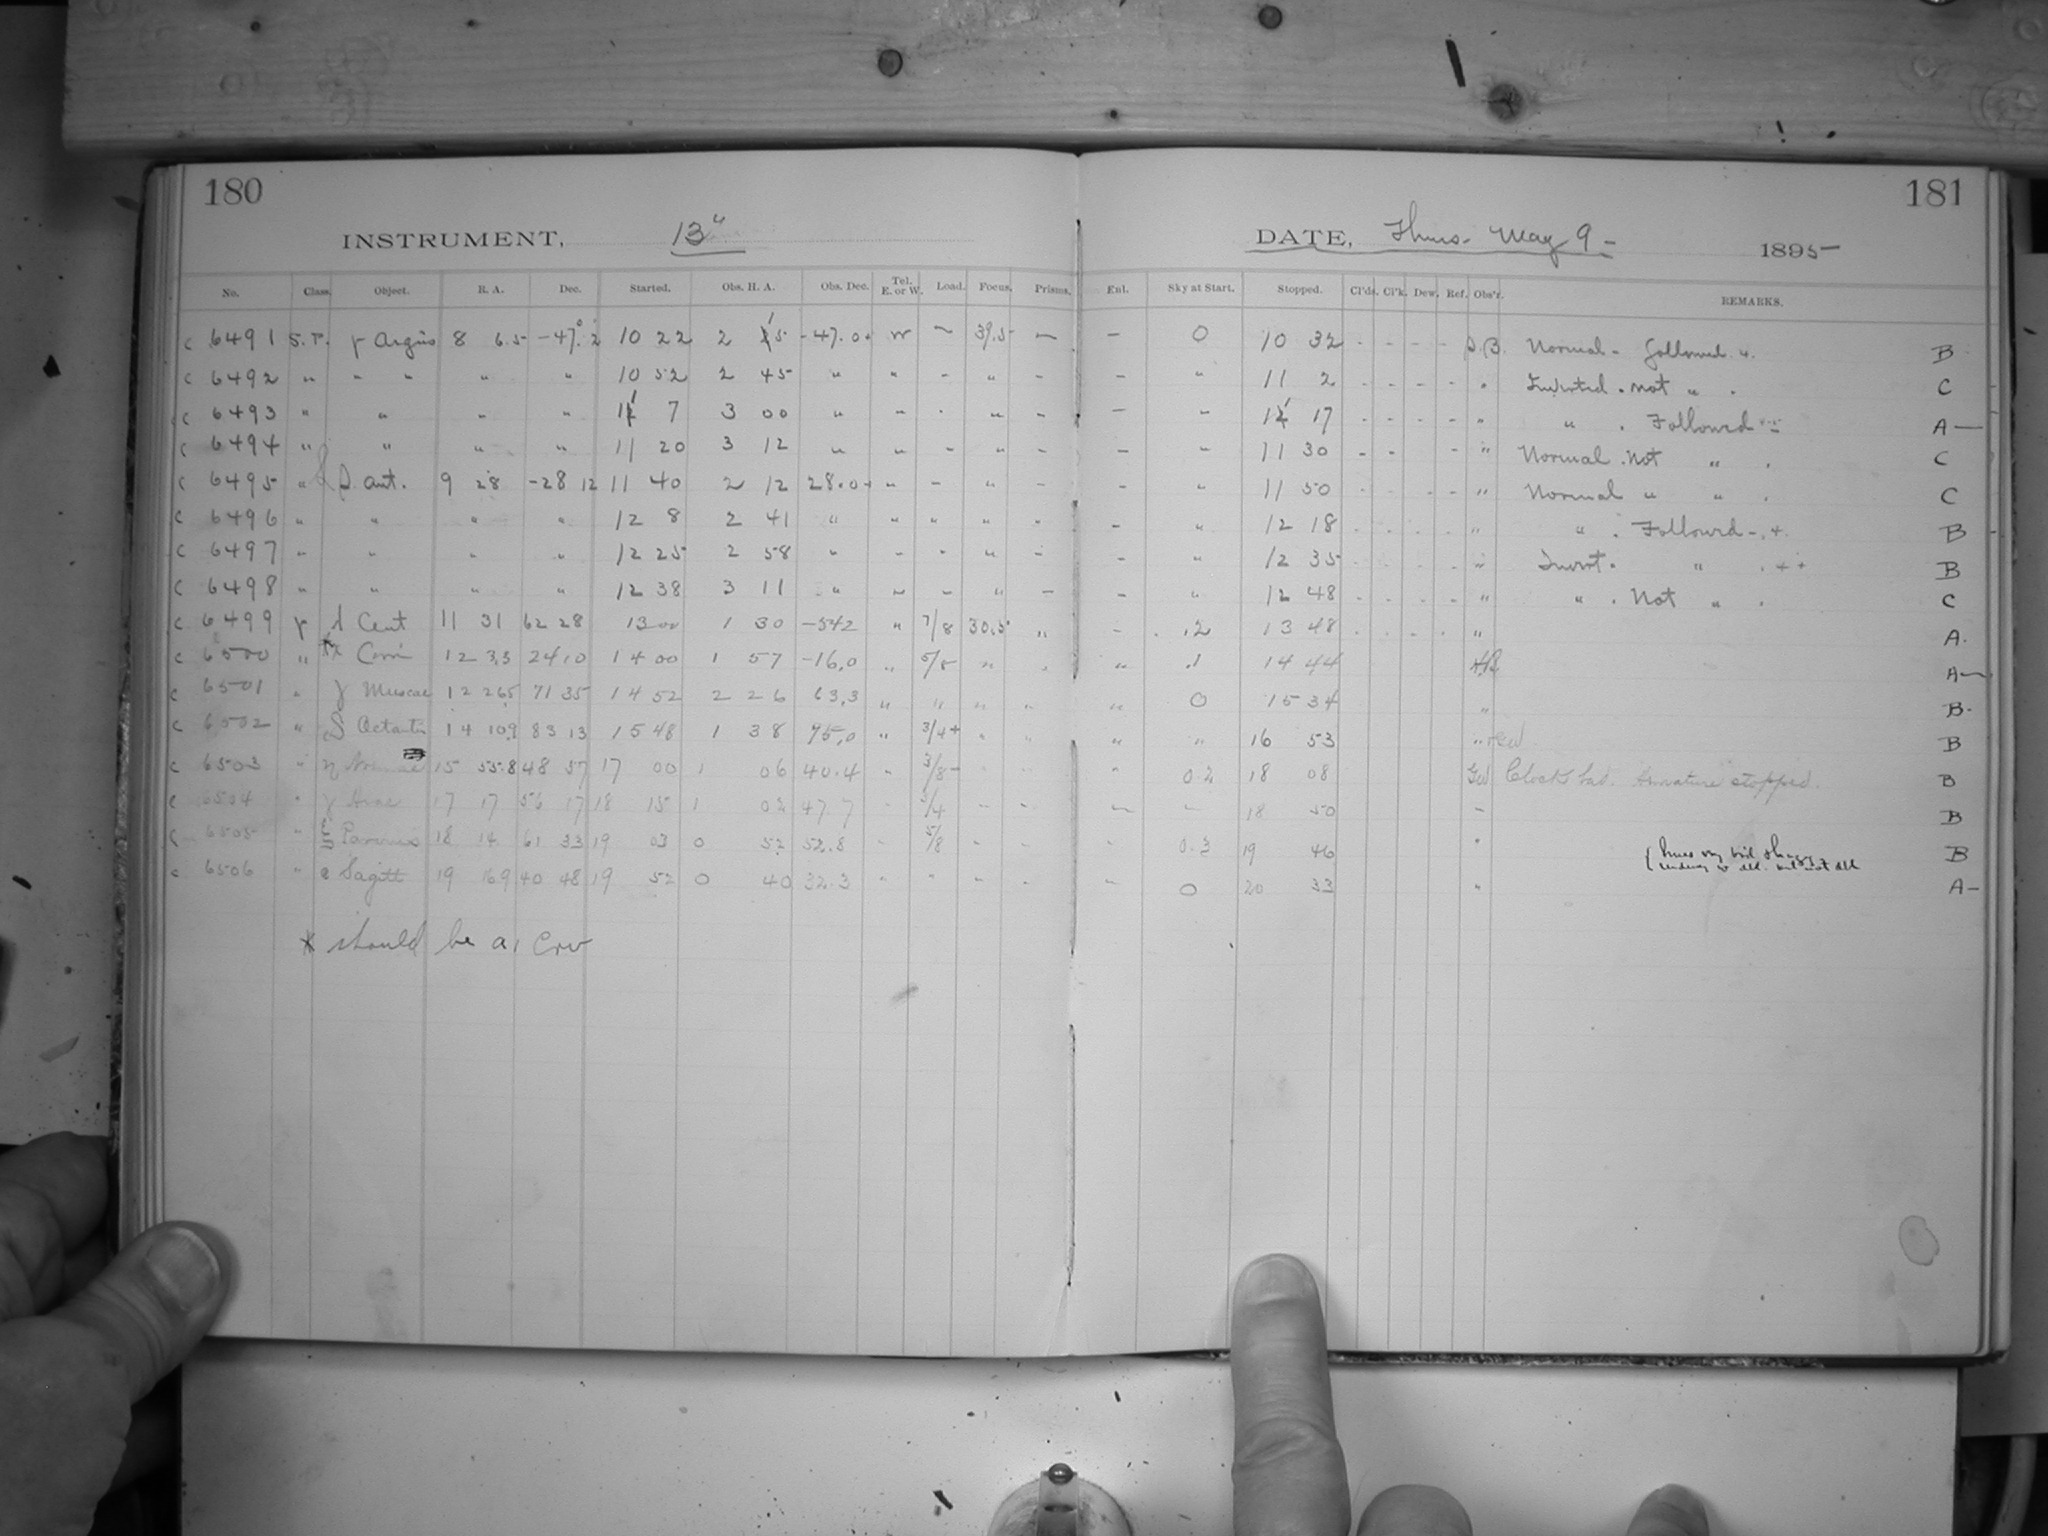 180
181
INSTRUMENT, 13"
DATE, Thurs. May 9 - 1895
No. Class. Object. R. A. Dec. Started. Obs. H. A. Obs. Dec. Tel. E. or W. Load. Focus. Prisms. Enl. Sky at Start. Stopped. Cl'ds. Cl'k. Dew. Ref. Obs'r. REMARKS.
c 6491 S.T. γ Argus 8 6.5 -47° 2' 10 22 2 15 -47.0 W - 39.5 - - 0 10 32 - - - - S.B. Normal - followed B
c 6492 " " " " " 10 52 2 45 " " - " - - " 11 2 - - - - " Inverted . not " . C
c 6493 " " " " 11 7 3 00 " " . " - - " 11 17 - - - - " " . Followed A-
c 6494 " " " " 11 20 3 12 " " - " " - " 11 30 - - - " Normal . not " . C
c 6495 " S. ant. 9 28 -28 12 11 40 2 12 28.0 " - " - - " 11 50 - - - - " Normal " " . C
c 6496 " " " " 12 8 2 41 " " " " " - " 12 18 . . . . " " . Followed - . + B
c 6497 " " " " 12 25 2 58 " " - " - - " 12 35 . . . . " Invert. " . + + B
c 6498 " " " " 12 38 3 11 " " - " - - " 12 48 . . . . " " . Not " . C
c 6499 γ λ Cent 11 31 62 28 13 00 1 30 -54.2 " 7/8 30.5 " - .2 13 48 . . . . " A.
c 6500 " * Corvi 12 3.3 24.0 14 00 1 57 -16.0 " 5/8 " " " .1 14 44 A-
c 6501 " γ Muscae 12 26.5 71 35 14 52 2 26 63.3 " " " " " 0 15 34 " B
c 6502 " δ Octantis 14 10.9 83 13 15 48 1 38 75.0 " 3/4+ " " " " 16 53 " B
c 6503 " η 15 55.8 48 57 17 00 1 06 40.4 " 3/8- " " " 0.2 18 08 GW Clock bad. Armature stopped. B
c 6504 " γ Arae 17 17 56 17 18 15 1 02 47.7 3/4 - - - - 18 50 - B
c 6505 " ξ Pavonis 18 14 61 33 19 03 0 52 52.8 - 5/8 - - " 0.3 19 46 " B
c 6506 " α Sagitt 19 16.9 40 48 19 52 0 40 32.3 " " " . " 0 20 33 " A-
* should be a, Corv